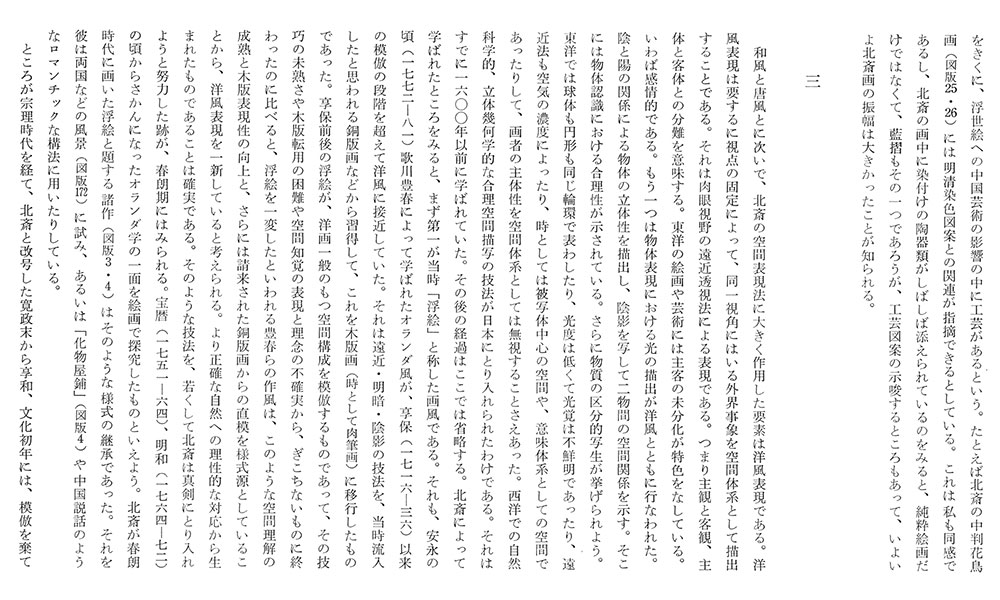 をきくに、浮世絵への中国芸術の影響の中に工芸があるという。たとえば北斎の中判花鳥
画（図版25・26）には明清染色図案との関連が指摘できるとしている。これは私も同感で
あるし、北斎の画中に染付けの陶器類がしばしば添えられているのをみると、純粋絵画だ
けではなくて、藍摺もその一つであろうが、工芸図案の示唆するところもあって、いよい
よ北斎画の振幅は大きかったことが知られる。
三
和風と唐風とに次いで、北斎の空間表現法に大きく作用した要素は洋風表現である。洋
風表現は要するに視点の固定によって、同一視角にはいる外界事象を空間体系として描出
することである。それは肉眼視野の遠近透視法による表現である。つまり主観と客観、主
体と客体との分離を意味する。東洋の絵画や芸術には主客の未分化が特色をなしている。
いわば感情的である。もう一つは物体表現における光の描出が洋風とともに行なわれた。
陰と陽の関係による物体の立体性を描出し、陰影を写して二物間の空間関係を示す。そこ
には物体認識における合理性が示されている。さらに物質の区分的写生が挙げられよう。
東洋では球体も円形も同じ輪環で表わしたり、光度は低くて光覚は不鮮明であったり、遠
近法も空気の濃度によったり、時としては被写体中心の空間や、意味体系としての空間で
あったりして、画者の主体性を空間体系としては無視することさえあった。西洋での自然
科学的、立体幾何学的な合理空間描写の技法が日本にとり入れられたわけである。それは
すでに一六〇〇年以前に学ばれていた。その後の経過はここでは省略する。北斎によって
学ばれたところをみると、まず第一が当時「浮絵」と称した画風である。それも、安永の
頃（一七七二―八一）歌川豊春によって学ばれたオランダ風が、享保（一七一六―三六）以来
の模倣の段階を超えて洋風に接近していた。それは遠近・明暗・陰影の技法を、当時流入
したと思われる銅版画などから習得して、これを木版画（時として肉筆画）に移行したもの
であった。享保前後の浮絵が、洋画一般のもつ空間構成を模倣するものであって、その技
巧の未熟さや木版転用の困難や空間知覚の表現と理念の不確実から、ぎこちないものに終
わったのに比べると、浮絵を一変したといわれる豊春らの作風は、このような空間理解の
成熟と木版表現性の向上と、さらには請来された銅版画からの直模を様式源としているこ
とから、洋風表現を一新していると考えられる。より正確な自然への理性的な対応から生
まれたものであることは確実である。そのような技法を、若くして北斎は真剣にとり入れ
ようと努力した跡が、春朗期にはみられる。宝暦（一七五一―六四）、明和（一七六四―七二）
の頃からさかんになったオランダ学の一面を絵画で探究したものといえよう。北斎が春朗
時代に画いた浮絵と題する諸作（図版3・4）はそのような様式の継承であった。それを
彼は両国などの風景（図版172）に試み、あるいは「化物屋鋪」（図版4）や中国説話のよう
なロマンチックな構法に用いたりしている。
ところが宗理時代を経て、北斎と改号した寛政末から享和、文化初年には、模倣を棄て